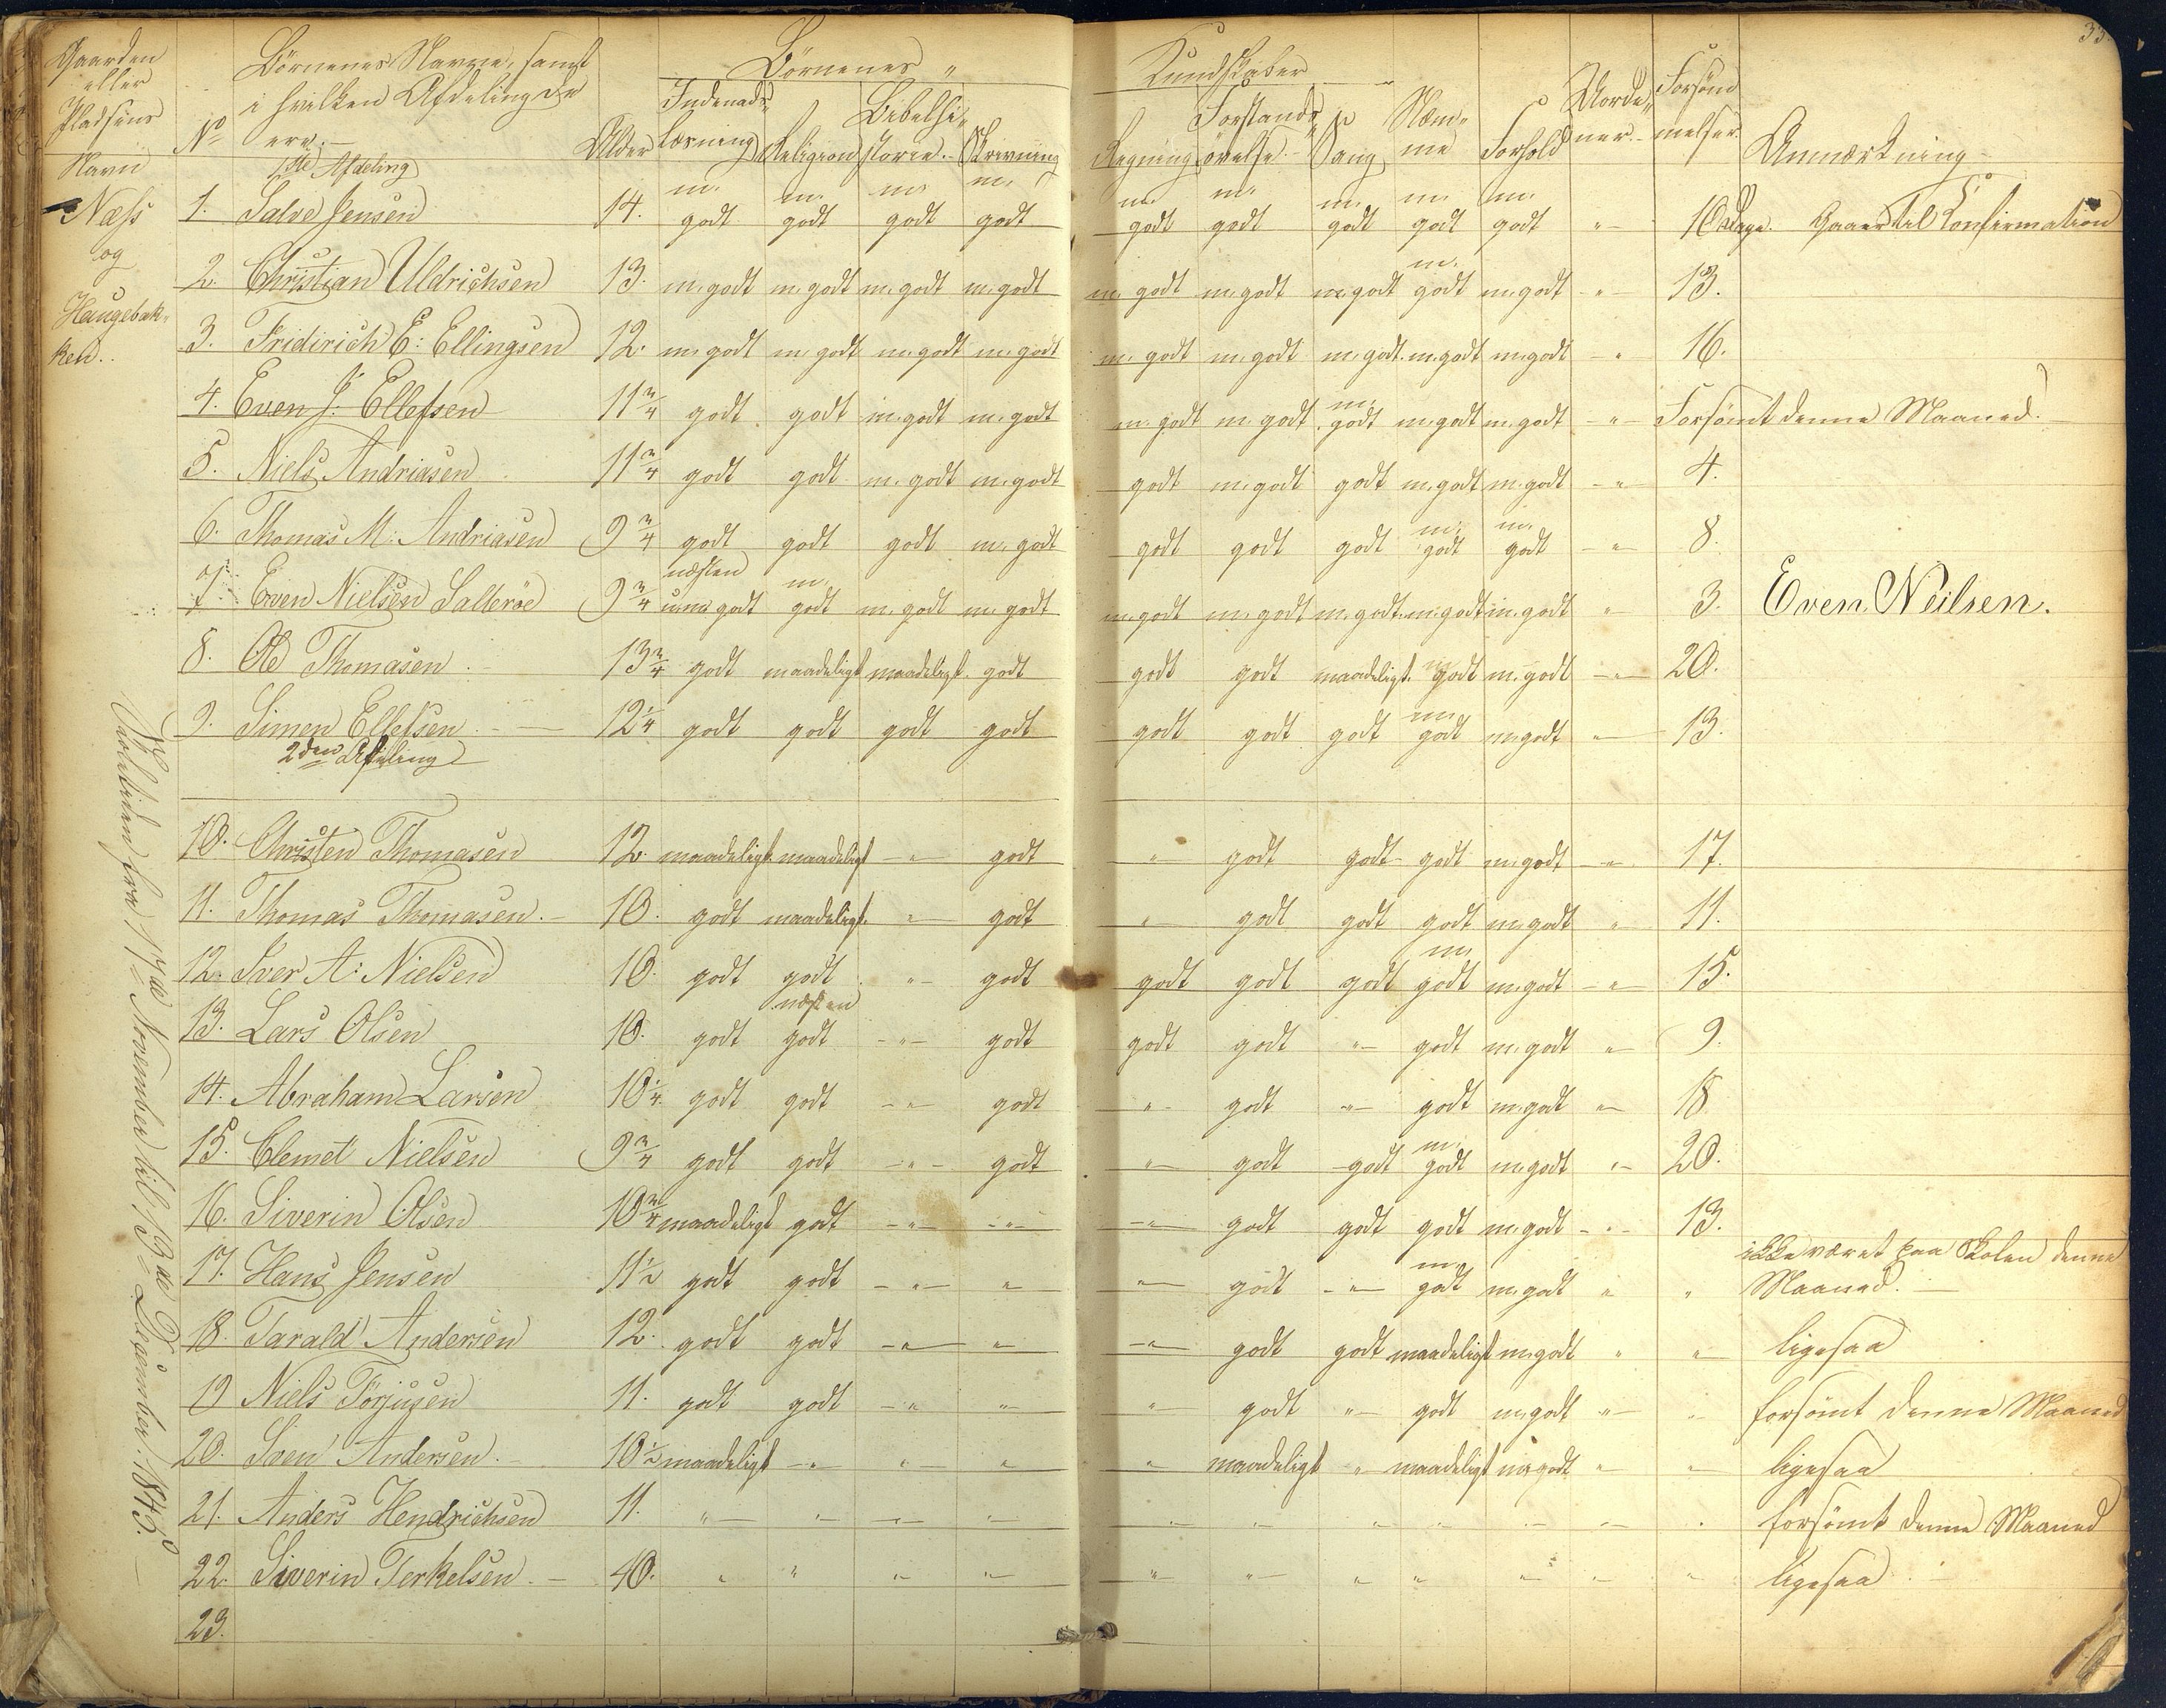 33.
Gaarden eller Pladsens Navn | No | Börnenes Navne, samt i hvilken Afdeling de ere. | Alder | Börnenes " Kundskaber
Indenadslæsning | Religion | Bibelhistorie. | Skrivning | Regning | Forstandsövelse. | Sang | Næmme | Forhold | | Forsömmelser. | Anmærkning
1ste Afdeling
Næss og Haugebakken..
1. Salve Jensen 14. m. godt m. godt m. godt m. godt m. godt m. godt m. godt m. godt m. godt " 10 Dage. Gaaer til Confirmation
2. Christian Uldrichsen 13. m. godt m. godt m. godt m. godt m. godt m. godt m. godt m. godt m. godt " 13.
3. Fridirich E: Ellingsen 12. m. godt m. godt m. godt m. godt m. godt m. godt m. godt. m. godt m. godt " 16.
4. Even J: Ellefsen 11 3/4 godt godt m. godt m. godt m. godt m. godt m. godt m. godt m. godt " Forsömt denne Maaned.
5. Niels Andriasen 11 3/4 godt godt m. godt m. godt godt m. godt godt m. godt m. godt " 4.
6. Thomas M: Andriasen 9 3/4 godt godt godt m. godt godt godt godt m. godt m. godt " 8.
7. Even Nielsen Sallerøe 9 3/4 næsten m. godt m. godt m. godt m. godt m. godt m. godt m. godt. m. godt m. godt " 3. Even Neilsen.
8. Ole Thomasen. 13 3/4 godt maadeligt maadeligt godt godt godt maadeligt. m. godt m. godt " 20.
9. Simen Ellefsen. 12 1/4 godt godt godt godt godt godt godt m. godt m. godt " 13.
2den Afdeling
10. Christen Thomasen 12. maadeligt maadeligt " godt " godt godt godt m. godt " 17.
11. Thomas Thomasen. 10. godt maadeligt. " godt " godt godt godt m. godt " 11.
12. Iver A: Nielsen 10. godt godt " godt godt godt godt m. godt m. godt " 15.
13. Lars Olsen 10. godt næsten godt " godt godt godt " godt m. godt " 9.
14. Abraham Larsen 10 1/4 godt godt " godt " godt " godt m. godt " 18
15. Clemet Nielsen 9 3/4 godt godt " godt " godt godt m. godt m. godt " 20.
16. Siverin Olsen 10 3/4 maadeligt godt " " " godt godt godt m. godt " 13.
17. Hans Jensen 11 1/2 godt godt " " " godt " m. godt m. godt " " ikke været paa Skolen denne Maaned.
18. Tarald Andersen 12. godt godt " " " godt godt maadeligt m. godt " " ligesaa
19 Niels Törjusen 11. godt godt " " " godt " godt m. godt " " forsömt denne Maaned
20. Sven Andersen. 10 1/2 maadeligt " " " " maadeligt " maadeligt m. godt " " ligesaa
21. Anders Hendrichsen 11. " " " " " " " " " " " forsömt denne Maaned
22. Siverin Terkelsen. 10. " " " " " " " " " " " ligesaa.
23.
fra 17de November til 19de Desember. 1845.